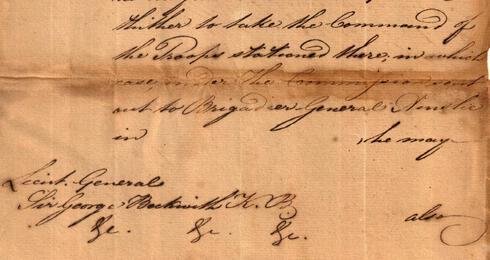 thither to take the Command of
the Troops stationed there, in which
case, under the Commission sent
out to Brigadier General Ainslie
in he may
Lieut. General
Sir George Beckwith K. B.
&c. &c. &c.
also